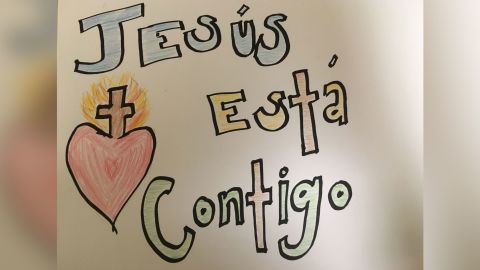 Jesús
Está
Contigo